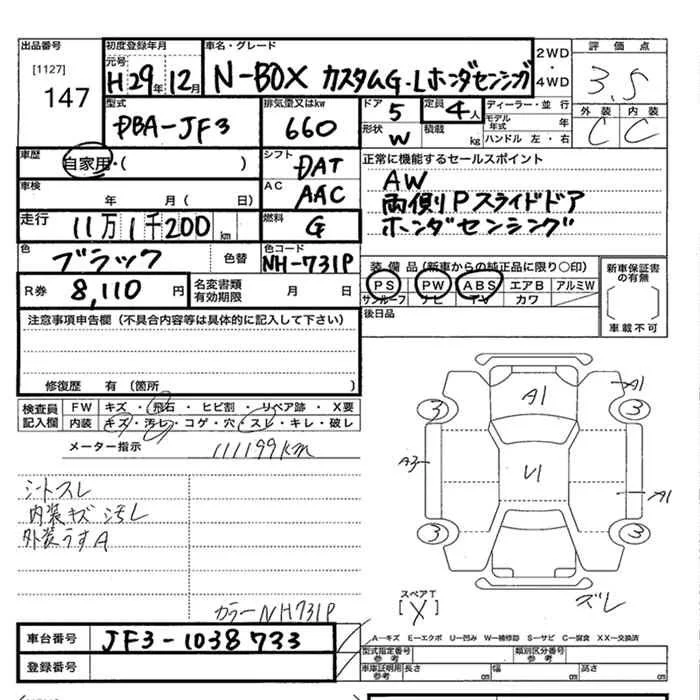 出品番号 [1127] 147
初度登録年月 元号 H29年12月
車名・グレード N-BOX カスタムG・Lホンダセンシング
2WD・4WD
評価点 3.5
型式 DBA-JF3
排気量又はkw 660
ドア 5 定員 4人
形状 W 積載 kg
ディーラー・並行
モデル年式 年
ハンドル 左・右
外装 C 内装 C
車歴 自家用・( )
シフト DAT
正常に機能するセールスポイント
AW
両側Pスライドドア
ホンダセンシング
車検 年 月( 日)
AC AAC
走行 11万1千200km
燃料 G
色 ブラック 色替
色コード NH-731P
装備品(新車からの純正品に限り○印)
PS PW ABS エアB アルミW
サンルーフ ナビ TV カワ
新車保証書の有無
[ ]
車載不可
R券 8,110円
名変書類有効期限 月 日
後日品
注意事項申告欄(不具合内容等は具体的に記入して下さい)
修復歴 有(箇所 )
検査員記入欄
FW キズ・飛石・ヒビ割・リペア跡・X要
内装 キズ・汚レ・コゲ・穴・スレ・キレ・破レ
メーター指示 111199km
シートスレ
内装キズ 汚レ
外装うすA
カラーNH731P
A1
A1
3
3
A3
U1
A1
3
3
ズレ
スペアT
[X]
A―キズ E―エクボ U―凹み W―補修跡 S―サビ C―腐食 XX―交換済
車台番号 JF3-1038733
登録番号
型式指定番号 参考
類別区分番号 参考
車庫証明用 参考 長さ cm 幅 cm 高さ cm